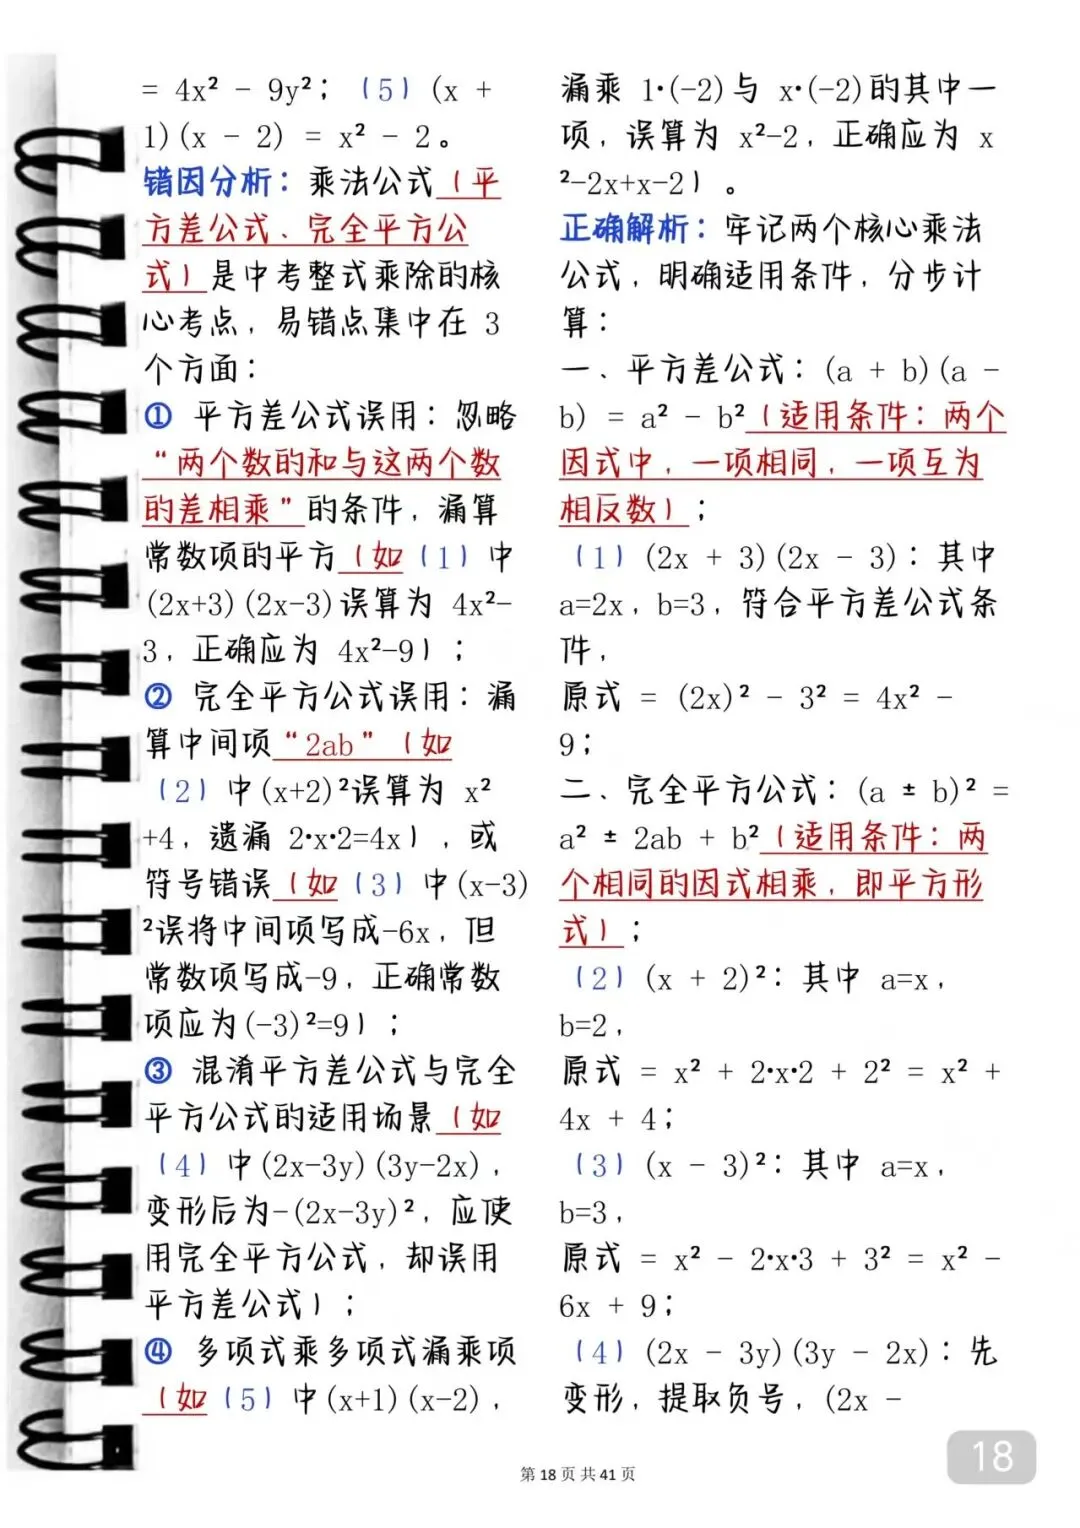 = 4x² - 9y²；（5）(x +
1)(x - 2) = x² - 2。
错因分析：乘法公式（平
方差公式、完全平方公
式）是中考整式乘除的核
心考点，易错点集中在 3
个方面：
① 平方差公式误用：忽略
“两个数的和与这两个数
的差相乘”的条件，漏算
常数项的平方（如（1）中
(2x+3)(2x-3)误算为 4x²-
3，正确应为 4x²-9）；
② 完全平方公式误用：漏
算中间项“2ab”（如
（2）中(x+2)²误算为 x²
+4，遗漏 2·x·2=4x），或
符号错误（如（3）中(x-3)
²误将中间项写成-6x，但
常数项写成-9，正确常数
项应为(-3)²=9）；
③ 混淆平方差公式与完全
平方公式的适用场景（如
（4）中(2x-3y)(3y-2x)，
变形后为-(2x-3y)²，应使
用完全平方公式，却误用
平方差公式）；
④ 多项式乘多项式漏乘项
（如（5）中(x+1)(x-2)，
漏乘 1·(-2)与 x·(-2)的其中一
项，误算为 x²-2，正确应为 x
²-2x+x-2）。
正确解析：牢记两个核心乘法
公式，明确适用条件，分步计
算：
一、平方差公式：(a + b)(a -
b) = a² - b²（适用条件：两个
因式中，一项相同，一项互为
相反数）；
（1）(2x + 3)(2x - 3)：其中
a=2x，b=3，符合平方差公式条
件，
原式 = (2x)² - 3² = 4x² -
9；
二、完全平方公式：(a ± b)² =
a² ± 2ab + b²（适用条件：两
个相同的因式相乘，即平方形
式）；
（2）(x + 2)²：其中 a=x，
b=2，
原式 = x² + 2·x·2 + 2² = x² +
4x + 4；
（3）(x - 3)²：其中 a=x，
b=3，
原式 = x² - 2·x·3 + 3² = x² -
6x + 9；
（4）(2x - 3y)(3y - 2x)：先
变形，提取负号，(2x -
第 18 页 共 41 页
18